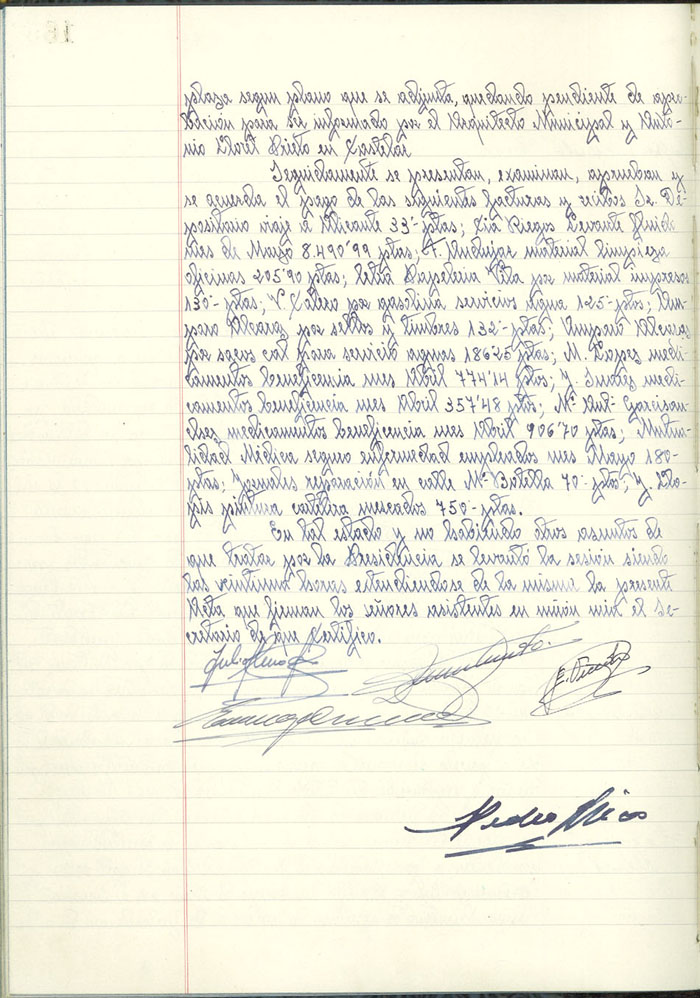 plaza segun plano que se adjunta, quedando pendiente de apro-
bación para ser informado por el Arquitecto Municipal y Anto-
nio Lloret Prieto en Castelar
Seguidamente se presentan, examinan, aprueban y
se acuerda el pago de las siguientes facturas y recibos Sr. De-
positario viaje a Alicante 33'- ptas; Cia Riegos Levante fluido
mes de Marzo 8.490'99 ptas; F. Andujar material limpieza
oficinas 205'90 ptas; letra Papeleria Vila por material impresos
130'- ptas; V por gasolina servicios Agua 125'- ptas; Am-
paro Alcaraz por sellos y timbres 132'- ptas; Amparo Alcaraz
por sacos cal para servicio aguas 186'25 ptas; M. Lopez medi-
camentos beneficencia mes Abril 774'14 ptas; J. Suarez medi-
camentos beneficencia mes Abril 357'48 ptas; Mª Ant. Garcisan-
chez medicamentos beneficencia mes Abril 906'70 ptas; Mutua-
lidad Médica seguro enfermedad empleados mes Mayo 180-
ptas; Jornales reparación en calle Mª Botella 70'- ptas; J. Llo-
pis pintura cartelera mercados 750'- ptas.
En tal estado y no habiendo otros asuntos de
que tratar por la Presidencia se levantó la sesión siendo
las veintiuna horas extendiendose de la misma la presente
Acta que firman los señores asistentes en unión mia el Se-
cretario de que Certifico.
Pedro Rios